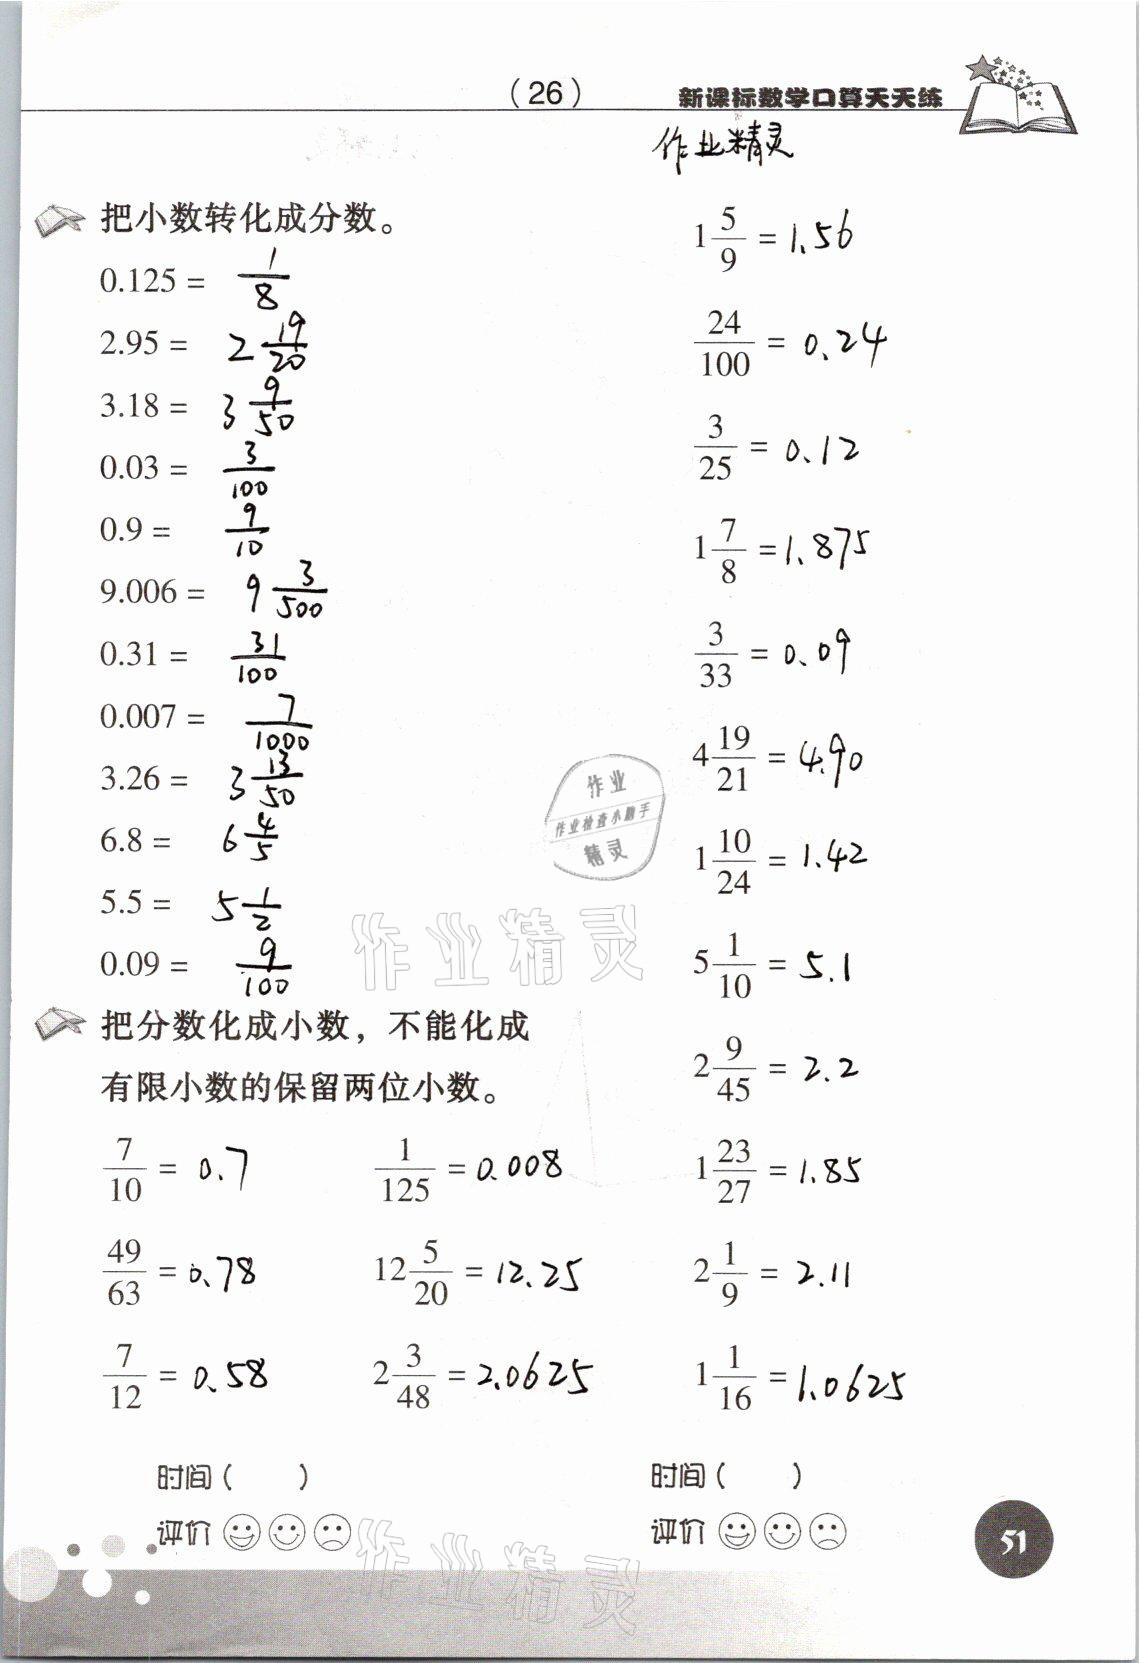 (26)
新课标数学口算天天练
作业精灵
把小数转化成分数。
0.125 = 1/8
2.95 = 2 19/20
3.18 = 3 9/50
0.03 = 3/100
0.9 = 9/10
9.006 = 9 3/500
0.31 = 31/100
0.007 = 7/1000
3.26 = 3 13/50
6.8 = 6 4/5
5.5 = 5 1/2
0.09 = 9/100
把分数化成小数，不能化成
有限小数的保留两位小数。
7/10 = 0.7
1/125 = 0.008
49/63 = 0.78
12 5/20 = 12.25
7/12 = 0.58
2 3/48 = 2.0625
时间( )
评价
1 5/9 = 1.56
24/100 = 0.24
3/25 = 0.12
1 7/8 = 1.875
3/33 = 0.09
4 19/21 = 4.90
1 10/24 = 1.42
5 1/10 = 5.1
2 9/45 = 2.2
1 23/27 = 1.85
2 1/9 = 2.11
1 1/16 = 1.0625
时间( )
评价
51
作业
作业检查小助手
精灵
作业精灵
作业精灵